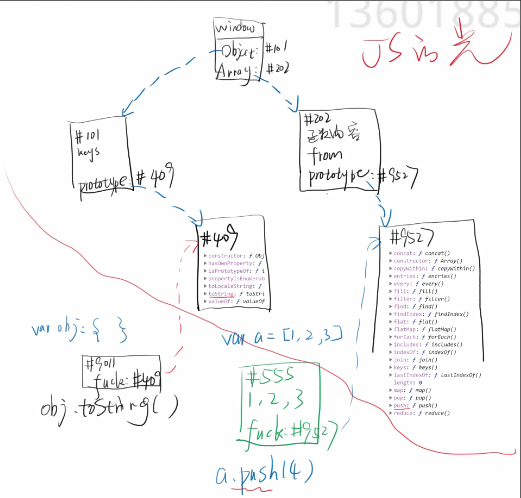 13601885
JS的光
window
Object: #101
Array: #202
#101
keys
prototype: #409
#202
函数内容
from
prototype: #9527
#409
constructor: ƒ Obj
hasOwnProperty: ƒ
isPrototypeOf: ƒ i
propertyIsEnumerab
toLocaleString: ƒ
toString: ƒ toStri
valueOf: ƒ valueOf
#9527
concat: ƒ concat()
constructor: ƒ Array()
copyWithin: ƒ copyWithin()
entries: ƒ entries()
every: ƒ every()
fill: ƒ fill()
filter: ƒ filter()
find: ƒ find()
findIndex: ƒ findIndex()
flat: ƒ flat()
flatMap: ƒ flatMap()
forEach: ƒ forEach()
includes: ƒ includes()
indexOf: ƒ indexOf()
join: ƒ join()
keys: ƒ keys()
lastIndexOf: ƒ lastIndexOf()
length: 0
map: ƒ map()
pop: ƒ pop()
push: ƒ push()
reduce: ƒ reduce()
var obj = { }
fuck: #409
obj.toString()
var a = [1, 2, 3]
#555
1, 2, 3
fuck: #9527
a.push(4)